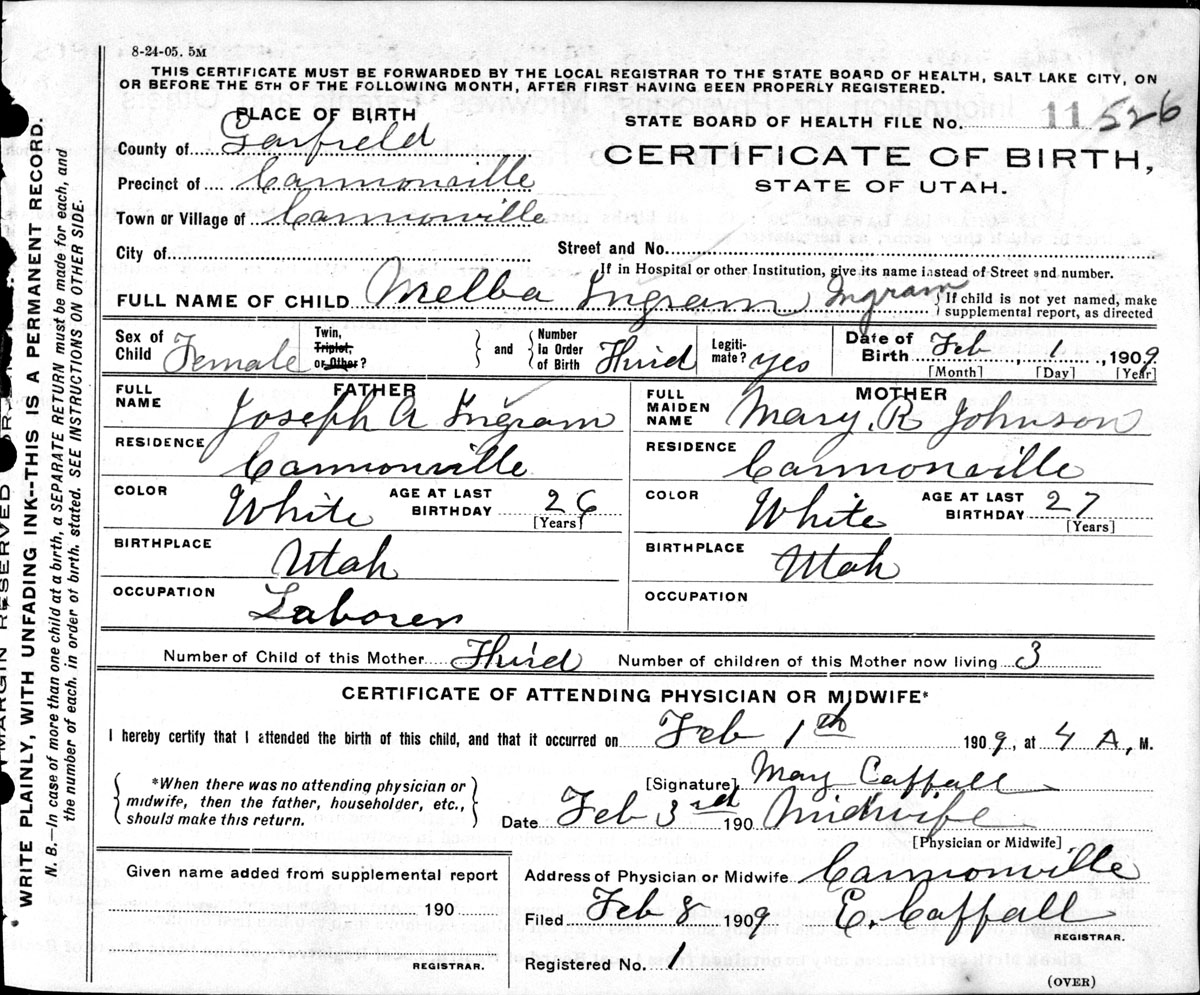 8-24-05. 5M
THIS CERTIFICATE MUST BE FORWARDED BY THE LOCAL REGISTRAR TO THE STATE BOARD OF HEALTH, SALT LAKE CITY, ON
OR BEFORE THE 5TH OF THE FOLLOWING MONTH, AFTER FIRST HAVING BEEN PROPERLY REGISTERED.
PLACE OF BIRTH
STATE BOARD OF HEALTH FILE No. 11 526
County of Garfield
CERTIFICATE OF BIRTH,
Precinct of Cannonville
STATE OF UTAH.
Town or Village of Cannonville
City of
Street and No.
If in Hospital or other Institution, give its name instead of Street and number.
FULL NAME OF CHILD Melba Ingram Ingram
If child is not yet named, make
supplemental report, as directed
Sex of Child Female Twin, Triplet, or Other? and Number in Order of Birth Third Legitimate? Yes Date of Birth Feb, 1, 1909
[Month] [Day] [Year]
FATHER
FULL NAME Joseph A Ingram
RESIDENCE
Cannonville
COLOR White AGE AT LAST BIRTHDAY 26
[Years]
BIRTHPLACE
Utah
OCCUPATION
Laborer
MOTHER
FULL MAIDEN NAME Mary. R Johnson
RESIDENCE
Cannonville
COLOR White AGE AT LAST BIRTHDAY 27
[Years]
BIRTHPLACE
Utah
OCCUPATION
Number of Child of this Mother Third Number of children of this Mother now living 3
CERTIFICATE OF ATTENDING PHYSICIAN OR MIDWIFE*
I hereby certify that I attended the birth of this child, and that it occurred on Feb 1th 1909, at 4 A, M.
*When there was no attending physician or
midwife, then the father, householder, etc.,
should make this return.
[Signature] May Caffall
Date Feb 3rd 190 Midwife
[Physician or Midwife]
Given name added from supplemental report
190
REGISTRAR.
Address of Physician or Midwife Cannonville
Filed Feb 8 1909 E. Caffall
REGISTRAR.
Registered No. 1
(OVER)
WRITE PLAINLY, WITH UNFADING INK--THIS IS A PERMANENT RECORD.
N. B.—In case of more than one child at a birth, a SEPARATE RETURN must be made for each, and
the number of each, in order of birth, stated. SEE INSTRUCTIONS ON OTHER SIDE.
MARGIN RESERVED